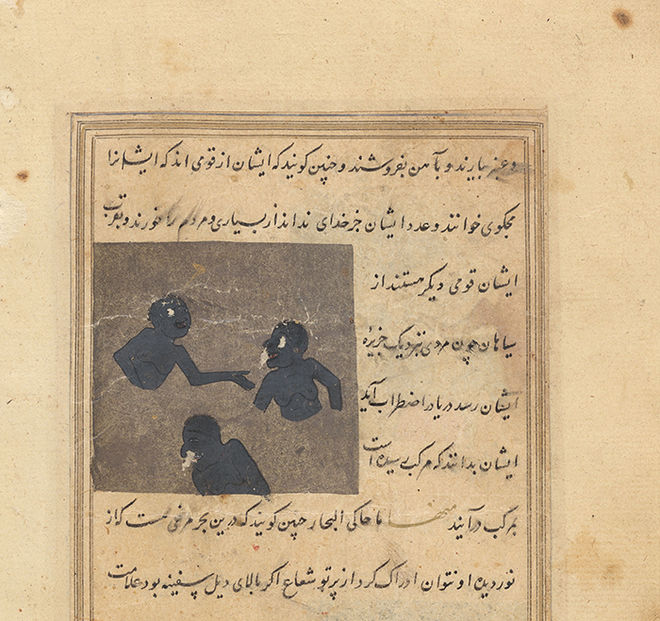 و عنبر بیارند و بآهن بفروشند و چنین گویند که ایشان از قومی اند که ایشانرا
خوانند و عدد ایشان جز خدای نداند از بسیاری و مردم را خورند و بقرب
ایشان قومی دیگر هستند از
سیاهان چون مردی بنزدیک جزیره
ایشان رسد دریا در اضطراب آید
ایشان بدانند که مرکب رسیده است
بمرکب درآیند منها حاکی البحار چنین گویند که درین بحر مرغی هست که از
نور دیده او نتوان ادراک کرد از پرتو شعاع اکر بالای دیل سفینه بود علامت